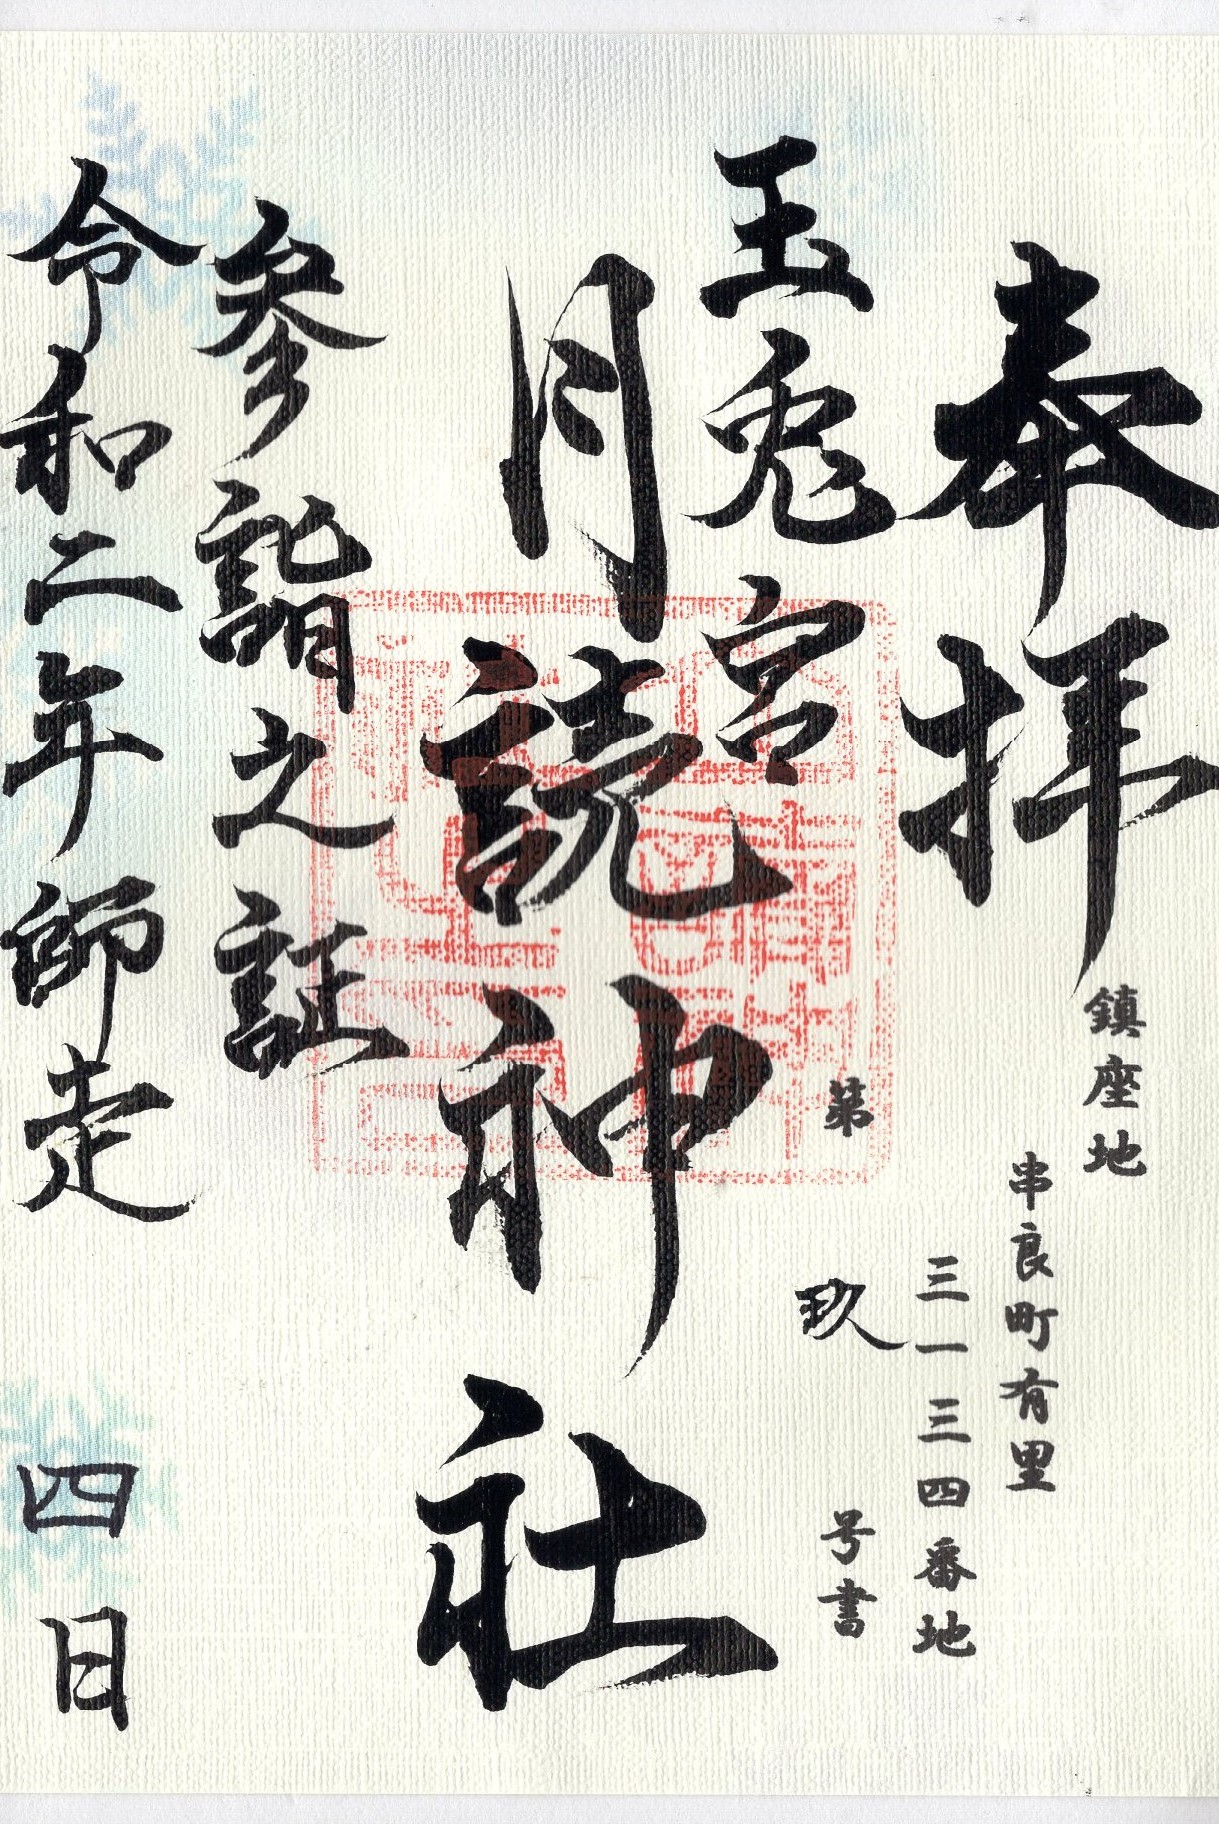 奉拝
鎮座地
串良町有里
三一三四番地
玉兎宮
第玖号書
月読神社
参詣之証
令和二年師走四日